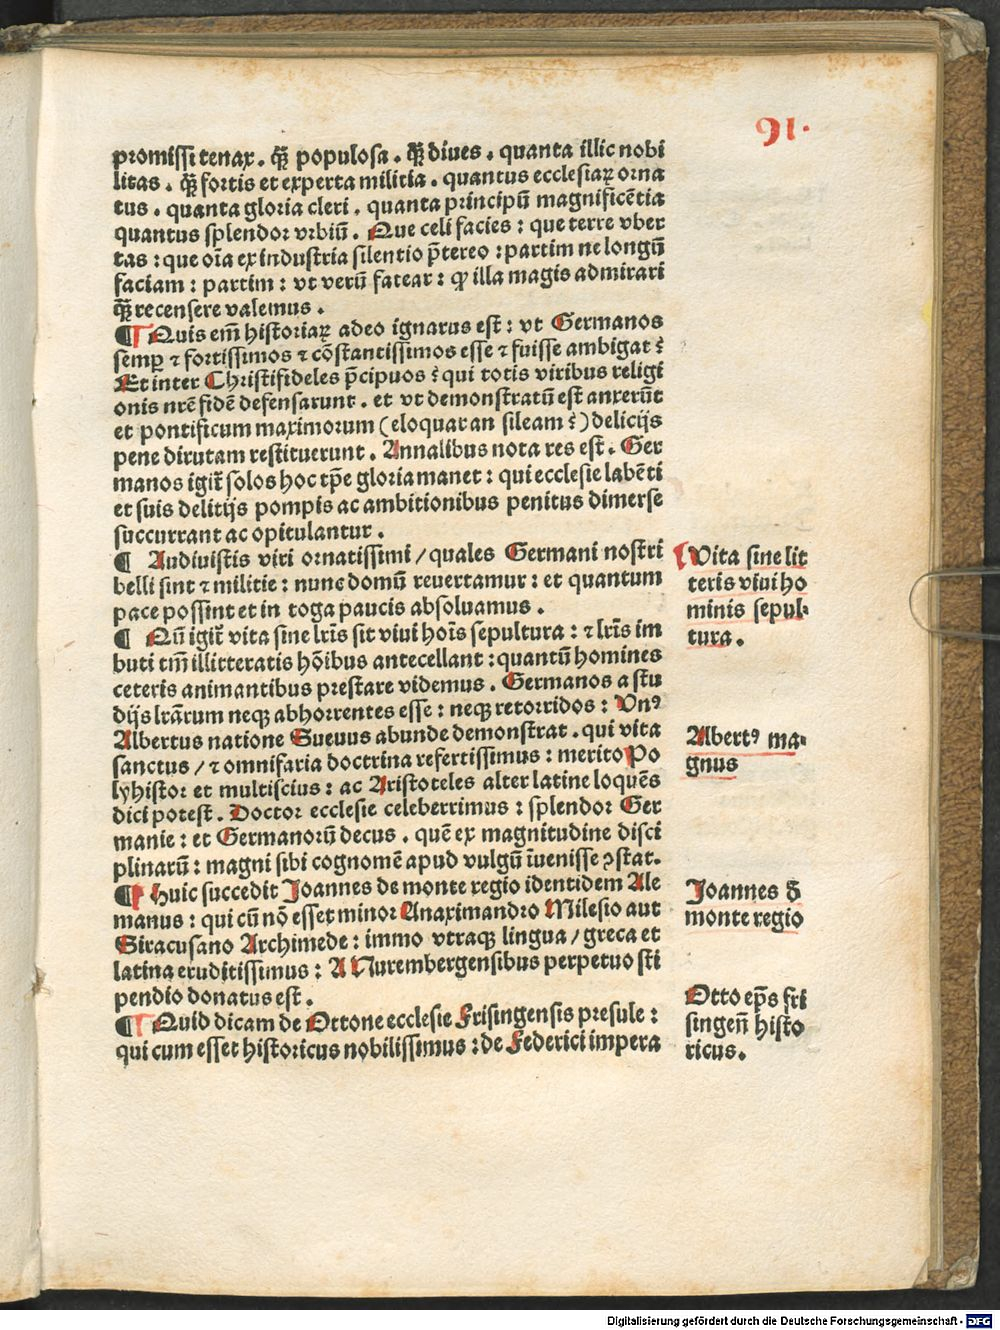 91.
promissi tenax. q̃ꝫ populosa. q̃ꝫ diues. quanta illic nobi
litas. q̃ꝫ fortis et experta militia. quantus ecclesiaꝝ orna
tus. quanta gloria cleri. quanta principū magnificētia
quantus splendor vrbiū. Que celi facies: que terre vber
tas: que oīa ex industria silentio p̄tereo: partim ne longū
faciam: partim: vt verū fatear: ꝙ illa magis admirari
q̃ꝫ recensere valemus.
¶ Quis em̄ historiaꝝ adeo ignarus est: vt Germanos
semꝑ ⁊ fortissimos ⁊ cōstantissimos esse ⁊ fuisse ambigat?
Et inter Christifideles p̄cipuos? qui totis viribus religi
onis nr̄e fidē defensarunt. et vt demonstratū est anxerūt
et pontificum maximorum (eloquar an sileam?) delicijs
pene dirutam restituerunt. Annalibus nota res est. Ger
manos igit̃ solos hoc tp̄e gloria manet: qui ecclesie labēti
et suis delitijs pompis ac ambitionibus penitus dimerse
succurrant ac opitulantur.
¶ Audiuistis viri ornatissimi/quales Germani nostri
belli sint ⁊ militie: nunc domū reuertamur: et quantum
pace possint et in toga paucis absoluamus.
¶ Cū igit̃ vita sine lr̄is sit viui hoīs sepultura: ⁊ lr̄is im
buti tm̄ illitteratis hōibus antecellant: quantū homines
ceteris animantibus prestare videmus. Germanos a stu
dijs lr̄arum neqꝫ abhorrentes esse: neqꝫ retorridos: Vnꝰ
Albertus natione Sueuus abunde demonstrat. qui vita
sanctus/⁊ omnifaria doctrina refertissimus: merito Po
lyhistor et multiscius: ac Aristoteles alter latine loquēs
dici potest. Doctor ecclesie celeberrimus: splendor Ger
manie: et Germanorū decus. quē ex magnitudine disci
plinarū: magni sibi cognomē apud vulgū īuenisse ꝯstat.
¶ Huic succedit Joannes de monte regio identidem Ale
manus: qui cū nō esset minor Anaximandro Milesio aut
Siracusano Archimede: immo vtraqꝫ lingua/greca et
latina eruditissimus: A Nurembergensibus perpetuo sti
pendio donatus est.
¶ Quid dicam de Ottone ecclesie Frisingensis presule:
qui cum esset historicus nobilissimus: de Federici impera
Vita sine lit
teris viui ho
minis sepul-
tura.
Albertꝰ ma-
gnus
Joannes d̄
monte regio
Otto ep̄s fri
singeñ histo
ricus.
Digitalisierung gefördert durch die Deutsche Forschungsgemeinschaft - DFG